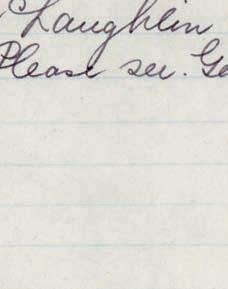 Laughlin
Please see. Ge